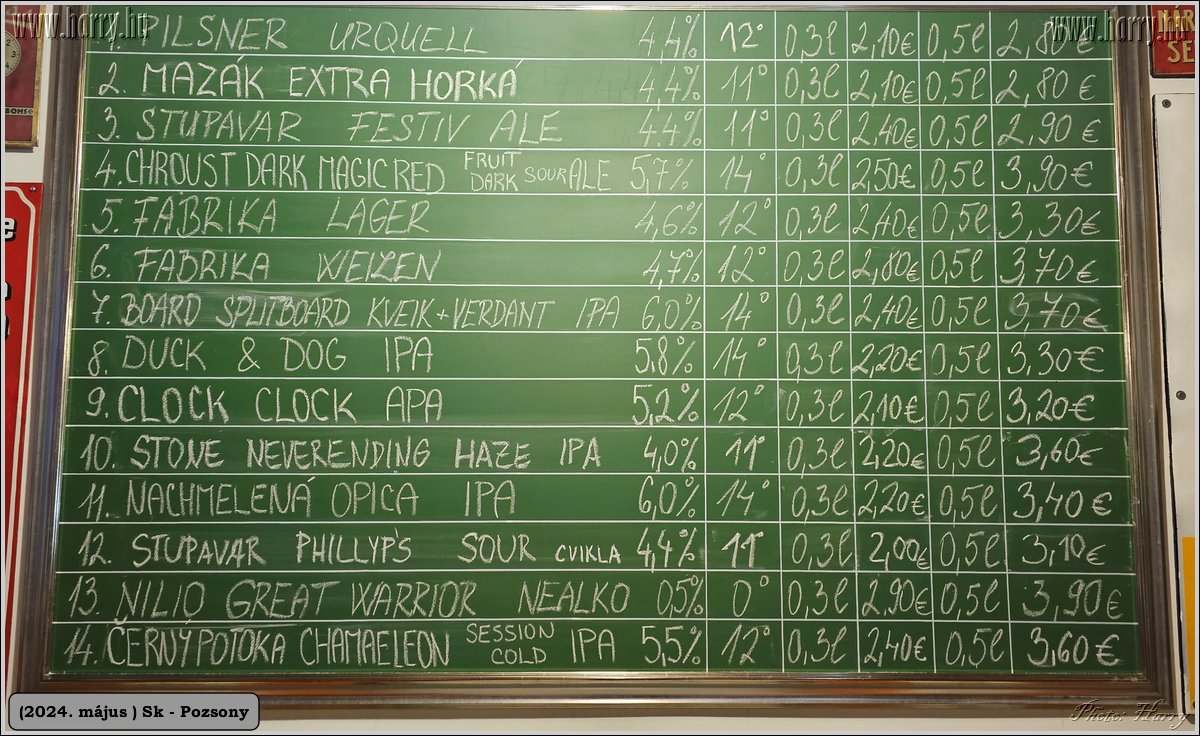 www.harry.hu www.harry.hu
1. PILSNER URQUELL 4,4% 12° 0,3l 2,10€ 0,5l 2,80€
2. MAZÁK EXTRA HORKÁ 4,4% 11° 0,3l 2,10€ 0,5l 2,80 €
3. STUPAVAR FESTIV ALE 4,4% 11° 0,3l 2,40€ 0,5l 2,90 €
4. CHROUST DARK MAGIC RED FRUIT DARK SOUR ALE 5,7% 14° 0,3l 2,50€ 0,5l 3,90€
5. FABRIKA LAGER 4,6% 12° 0,3l 2,40€ 0,5l 3,30€
6. FABRIKA WEIZEN 4,7% 12° 0,3l 2,80€ 0,5l 3,70€
7. BOARD SPLITBOARD KVEIK+VERDANT IPA 6,0% 14° 0,3l 2,40€ 0,5l 3,70€
8. DUCK & DOG IPA 5,8% 14° 0,3l 2,20€ 0,5l 3,30€
9. CLOCK CLOCK APA 5,2% 12° 0,3l 2,10€ 0,5l 3,20€
10. STONE NEVERENDING HAZE IPA 4,0% 11° 0,3l 2,20€ 0,5l 3,60€
11. NACHMELENÁ OPICA IPA 6,0% 14° 0,3l 2,20€ 0,5l 3,40€
12. STUPAVAR PHILLYP'S SOUR CVIKLA 4,4% 11° 0,3l 2,00€ 0,5l 3,10€
13. NILIO GREAT WARRIOR NEALKO 0,5% 0° 0,3l 2,90€ 0,5l 3,90€
14. ČERNÝ POTOKA CHAMAELEON SESSION COLD IPA 5,5% 12° 0,3l 2,40€ 0,5l 3,60€
(2024. május ) Sk - Pozsony
Photo: Harry